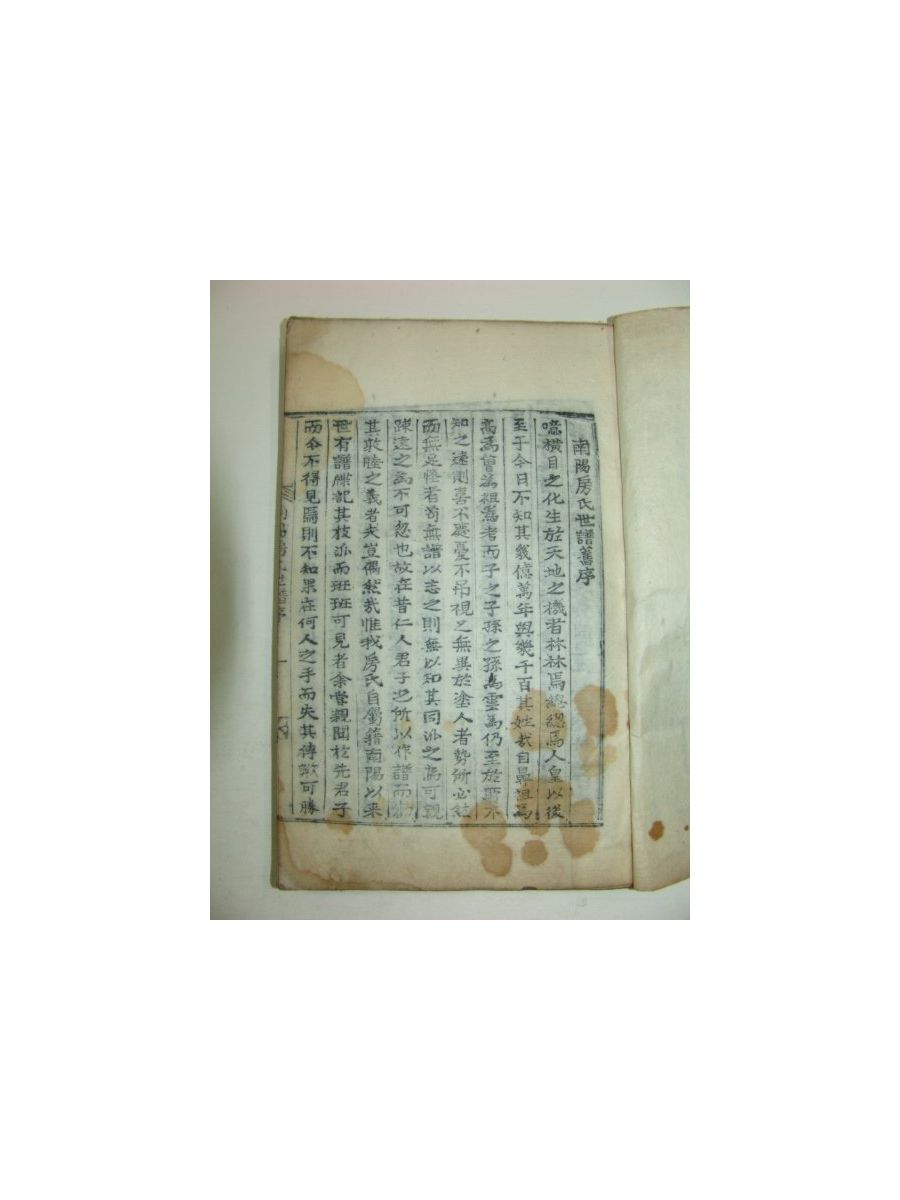 南陽房氏世譜舊序
噫橫目之化生於天地之機者林林焉總總焉人皇以後
至于今日不知其幾億萬年與幾千百其姓哉自鼻祖焉
高焉曾焉祖焉考而子之子孫之孫焉雲焉仍至於耶不
知之遠則喜不慶憂不吊視之無異於塗人者勢所必
而無足怪者苟無譜以志之則無以知其同派之為可親
疎遠之為不可忽也故在昔仁人君子之所以作譜而
其敦睦之義者夫豈偶然哉惟我房氏自屬籍南陽以來
世有譜牒記其枝派而班班可見者余嘗親聞於先君子
而今不得見焉則不知果在何人之手而失其傳歟可勝